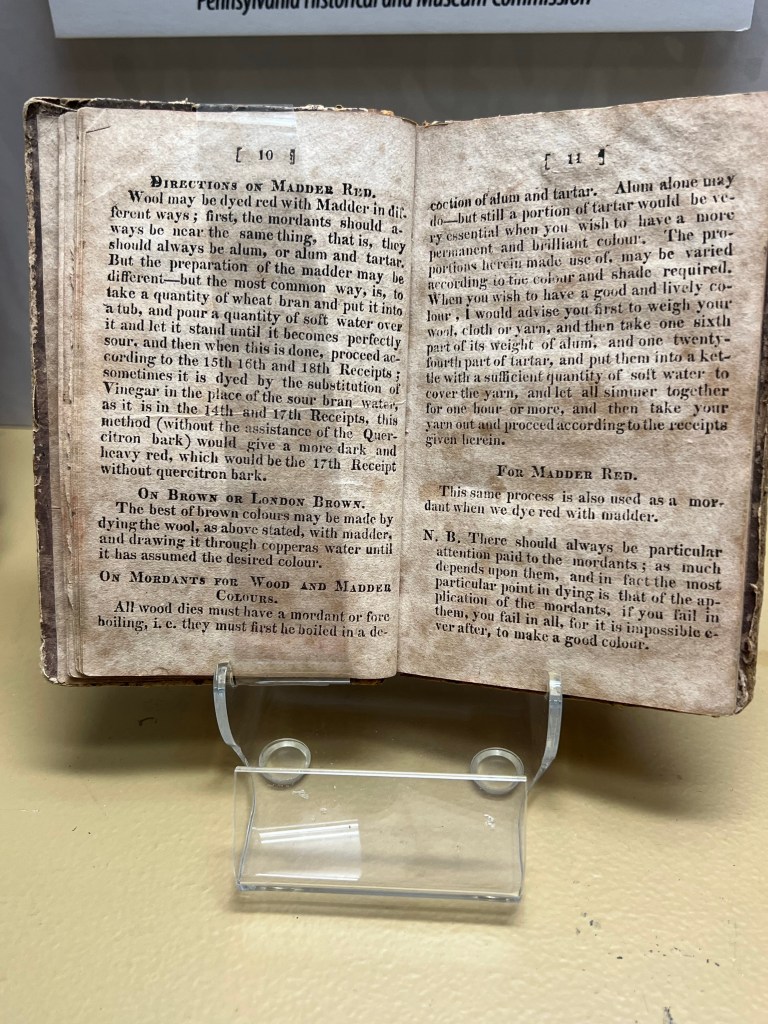 Pennsylvania Historical and Museum Commission
[ 10 ]
DIRECTIONS ON MADDER RED.
Wool may be dyed red with Madder in dif-
ferent ways ; first, the mordants should a-
ways be near the same thing, that is, they
should always be alum, or alum and tartar.
But the preparation of the madder may be
different—but the most common way, is, to
take a quantity of wheat bran and put it into
a tub, and pour a quantity of soft water over
it and let it stand until it becomes perfectly
sour, and then when this is done, proceed ac-
cording to the 15th 16th and 18th Receipts ;
sometimes it is dyed by the substitution of
Vinegar in the place of the sour bran water,
as it is in the 14th and 17th Receipts, this
method (without the assistance of the Quer-
citron bark) would give a more dark and
heavy red, which would be the 17th Receipt
without quercitron bark.
ON BROWN OR LONDON BROWN.
The best of brown colours may be made by
dying the wool, as above stated, with madder,
and drawing it through copperas water until
it has assumed the desired colour.
ON MORDANTS FOR WOOD AND MADDER
COLOURS.
All wood dies must have a mordant or fore
boiling, i. e. they must first be boiled in a de-
[ 11 ]
coction of alum and tartar. Alum alone may
do—but still a portion of tartar would be ve-
ry essential when you wish to have a more
permanent and brilliant colour. The pro-
portions herein made use of, may be varied
according to the colour and shade required.
When you wish to have a good and lively co-
lour , I would advise you first to weigh your
wool, cloth or yarn, and then take one sixth
part of its weight of alum, and one twenty-
fourth part of tartar, and put them into a ket-
tle with a sufficient quantity of soft water to
cover the yarn, and let all simmer together
for one hour or more, and then take your
yarn out and proceed according to the receipts
given herein.
FOR MADDER RED.
This same process is also used as a mor-
dant when we dye red with madder.
N. B. There should always be particular
attention paid to the mordants ; as much
depends upon them, and in fact the most
particular point in dying is that of the ap-
plication of the mordants, if you fail in
them, you fail in all, for it is impossible e-
ver after, to make a good colour.